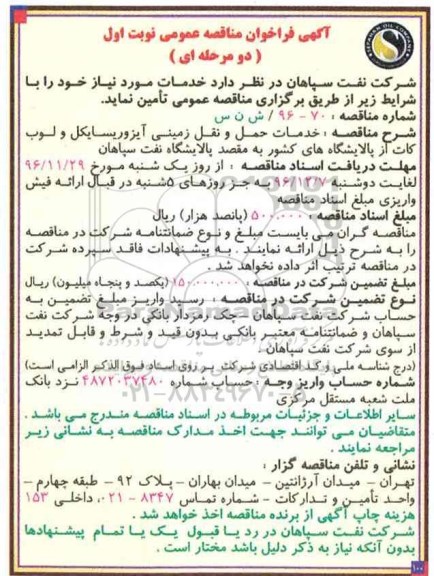 آگهی فراخوان مناقصه عمومی نوبت اول
( دو مرحله ای )
شرکت نفت سپاهان در نظر دارد خدمات مورد نیاز خود را با
شرایط زیر از طریق برگزاری مناقصه عمومی تأمین نماید.
شماره مناقصه : ۷۰ - ۹۶ / ش ن س
شرح مناقصه : خدمات حمل و نقل زمینی آیزوریسایکل و لوب
کات از پالایشگاه های کشور به مقصد پالایشگاه نفت سپاهان
مهلت دریافت اسناد مناقصه : از روز یک شنبه مورخ ۹۶/۱۱/۲۹
لغایت دوشنبه ۹۶/۱۲/۷ به جز روزهای ۵شنبه در قبال ارائه فیش
واریزی مبلغ اسناد مناقصه
مبلغ اسناد مناقصه : ۵۰۰.۰۰۰ (پانصد هزار) ریال
مناقصه گران می بایست مبلغ و نوع ضمانتنامه شرکت در مناقصه
را به شرح ذیل ارائه نمایند . به پیشنهادات فاقد سپرده شرکت
در مناقصه ترتیب اثر داده نخواهد شد .
مبلغ تضمین شرکت در مناقصه : ۱۵۰.۰۰۰.۰۰۰ (یکصد و پنجاه میلیون) ریال
نوع تضمین شرکت در مناقصه : رسید واریز مبلغ تضمین به
حساب شرکت نفت سپاهان - چک رمزدار بانکی در وجه شرکت نفت
سپاهان و ضمانتنامه معتبر بانکی بدون قید و شرط و قابل تمدید
از سوی شرکت نفت سپاهان.
(درج شناسه ملی و کد اقتصادی شرکت بر روی اسناد فوق الذکر الزامی است)
شماره حساب واریز وجه : حساب شماره ۴۸۷۲۰۳۷۴۸۰ نزد بانک
ملت شعبه مستقل مرکزی
سایر اطلاعات و جزئیات مربوطه در اسناد مناقصه مندرج می باشد .
متقاضیان می توانند جهت اخذ مدارک مناقصه به نشانی زیر
مراجعه نمایند .
نشانی و تلفن مناقصه گزار :
تهران - میدان آرژانتین - میدان بهاران - پلاک ۹۲ - طبقه چهارم -
واحد تأمین و تدارکات - شماره تماس ۸۳۴۷ - ۰۲۱، داخلی ۱۵۳
هزینه چاپ آگهی از برنده مناقصه اخذ خواهد شد .
شرکت نفت سپاهان در رد یا قبول یک یا تمام پیشنهادها
بدون آنکه نیاز به ذکر دلیل باشد مختار است .
۱۰۰